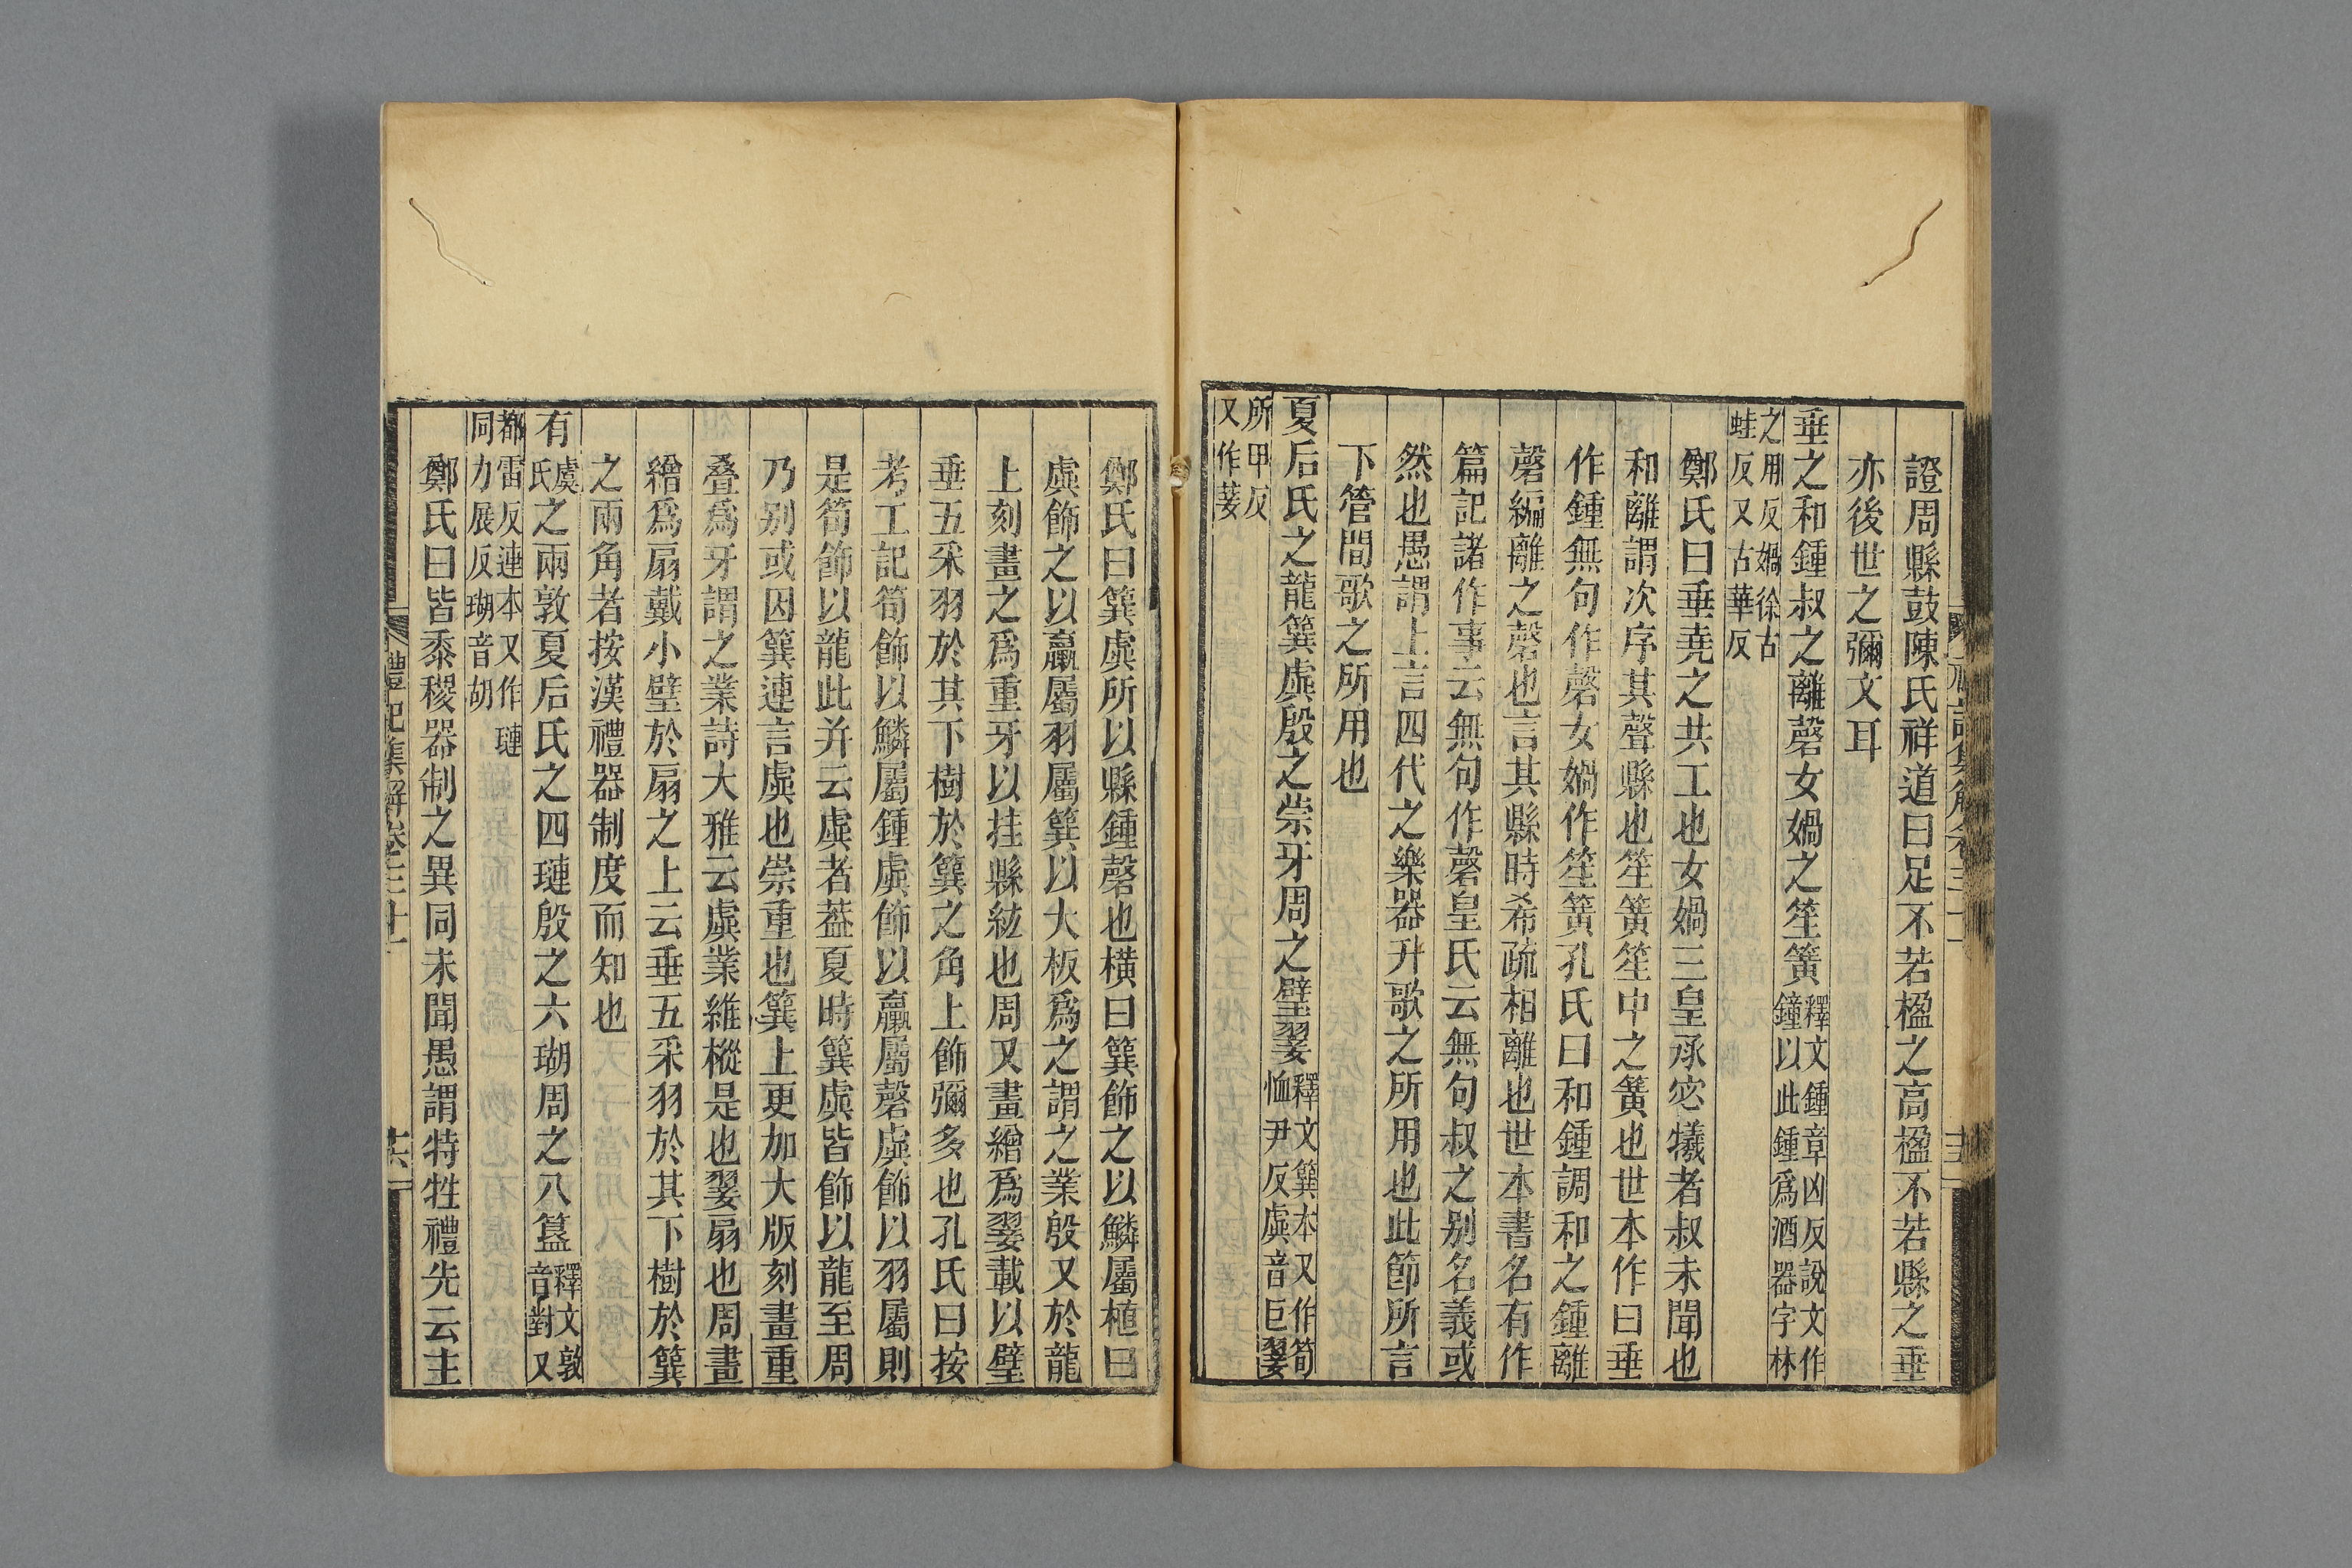 證周縣鼓陳氏祥道曰足不若楹之高楹不若縣之垂
亦後世之彌文耳
垂之和鍾叔之離磬女媧之笙簧釋文鍾章凶反說文作鐘以此鍾爲酒器字林
之用反媧徐古蛙反又古華反
鄭氏曰垂堯之共工也女媧三皇承宓犧者叔未聞也
和離謂次序其聲縣也笙簧笙中之簧也世本作曰垂
作鍾無句作磬女媧作笙簧孔氏曰和鍾調和之鍾離
磬編離之磬也言其縣時希疏相離也世本書名有作
篇記諸作事云無句作磬皇氏云無句叔之别名義或
然也愚謂上言四代之樂器升歌之所用也此節所言
下管間歌之所用也
夏后氏之龍簨虡殷之崇牙周之璧翣釋文簨本又作筍恤尹反虡音巨翣
所甲反又作萎
鄭氏曰簨虡所以縣鍾磬也橫曰簨飾之以鱗屬植曰
虡飾之以臝屬羽屬簨以大板爲之謂之業殷又於龍
上刻畫之爲重牙以挂縣紘也周又畫繒爲翣載以璧
垂五采羽於其下樹於簨之角上飾彌多也孔氏曰按
考工記筍飾以鱗屬鍾虡飾以臝屬磬虡飾以羽屬則
是筍飾以龍此并云虡者葢夏時簨虡皆飾以龍至周
乃别或因簨連言虡也崇重也簨上更加大版刻畫重
叠爲牙謂之業詩大雅云虡業維樅是也翣扇也周畫
繒爲扇戴小璧於扇之上云垂五采羽於其下樹於簨
之兩角者按漢禮器制度而知也
有虞氏之兩敦夏后氏之四璉殷之六瑚周之八簋釋文敦音對又
都雷反連本又作璉同力展反瑚音胡
鄭氏曰皆黍稷器制之異同未聞愚謂特牲禮先云主
禮記集解卷三十一
十六